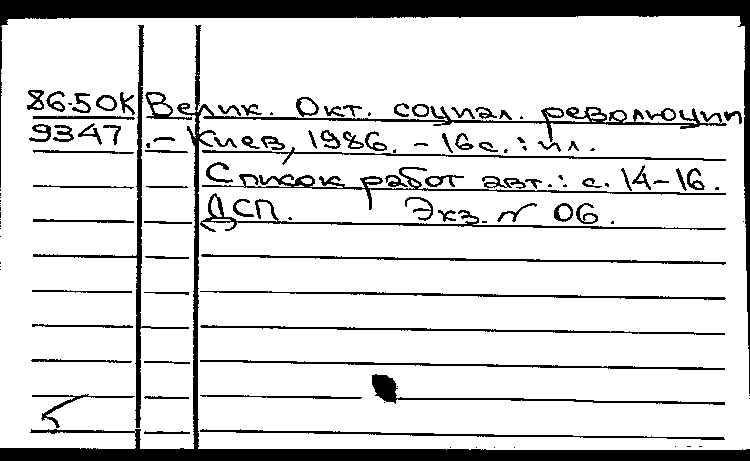 86-50К Велик. Окт. социал. революции
9347 .– Киев, 1986. – 16с. : ил.
Список работ авт.: с. 14–16.
ДСП. Экз. № 06.
5